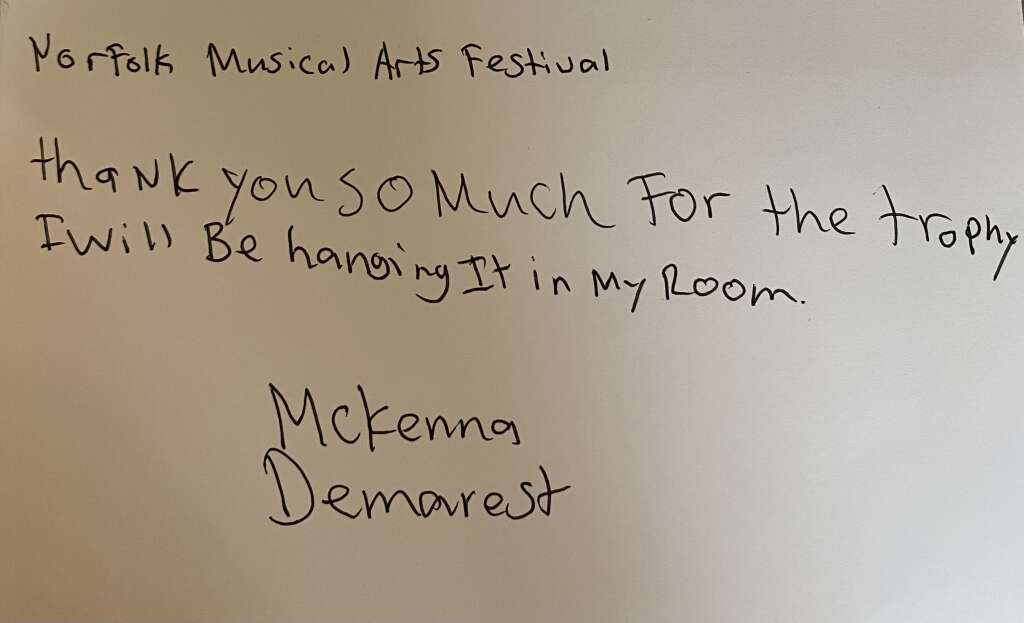 Norfolk Musical Arts Festival
thank you so Much For the trophy
I will Be hanging It in My Room.
Mckenna
Demarest